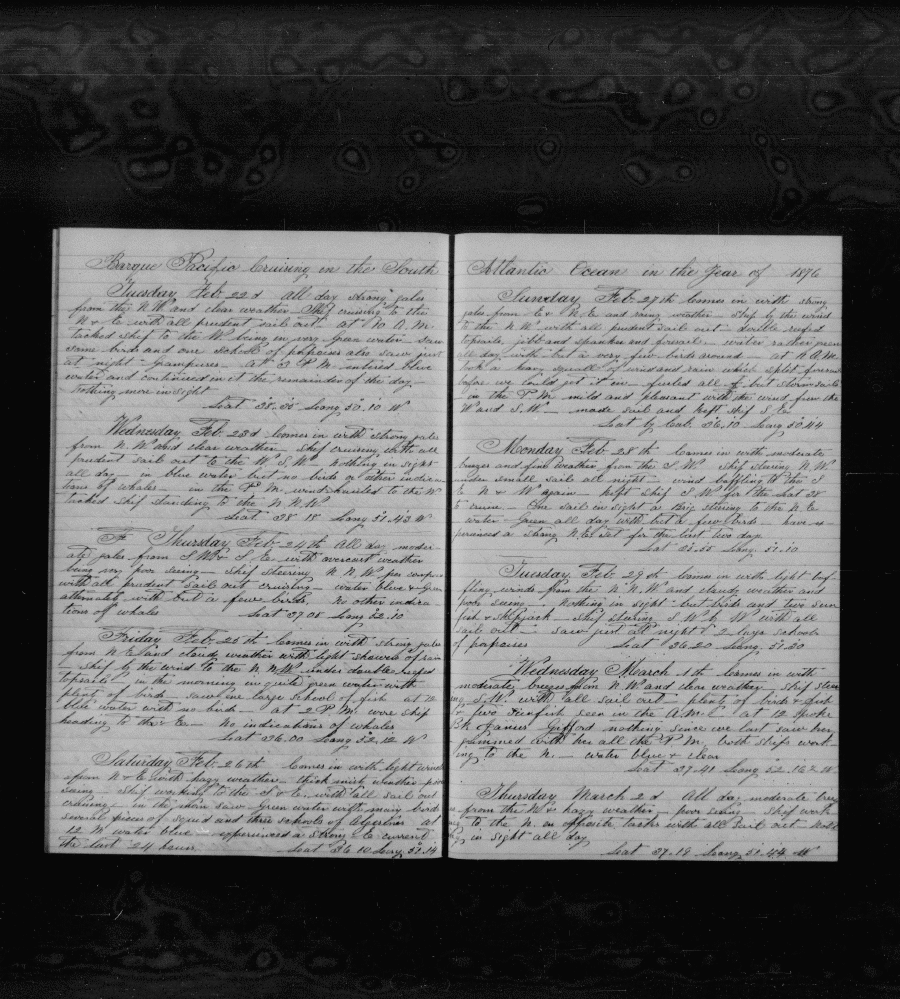 Barque Pacific Cruising in the South
Tuesday Feb 22d All day strong gales
from the N.W and clear weather Ship cruising to the
N & E with all prudent sail out at 10 A.M.
tacked ship to the W being in very green water saw
some birds and one school of porpoises also saw just
at night Grampuses At 3 P.M entered blue
water and continued in it the remainder of the day
Nothing more in sight
Lat 38.35 Long 50.10 W
Wednesday Feb 23d Comes in with strong gales
from N.W and clear weather Ship cruising with all
prudent sail out to the W.S.W nothing in sight
all day in blue water but no birds or other indica
tions of whales in the P.M. wind hauled to the W
tacked ship standing to the N.N.W
Lat 38 18 Long 51.43 W
Thursday Feb 24th All day moder
ate gales from S.W & S.E with overcast weather
being very poor seeing Ship steering N.N.W per compass
with all prudent sail out cruising water blue & Green
alternate with but a few birds, No other indica
tion of whales Lat 37.05 Long 52.10
Friday Feb 25th Comes in with strong gales
from N.E and cloudy weather with light showers of rain
Ship by the wind to the N.N.W under double reefed
topsails in the morning in quite green water with
plenty of birds saw one large school of fish at 12
blue water with no birds at 2 P.M. wore ship
heading to the E No indications of whales
Lat 36.00 Long 52.12 W
Saturday Feb 26th Comes in with light winds
from N & E with hazy weather thick misty weather poor
seeing Ship working to the S & E, with all sail out
cruising in the main saw Green water with many birds
several pieces of squid and three schools of Algerins at
12 M water blue experienced a strong E current
the last 24 hours Lat 36 10 Long 51.14
Atlantic Ocean in the Year of 1876
Sunday Feb 27th Comes in with strong
gales from E & N.E and rainy weather Ship by the wind
to the N.W with all prudent sail out double reefed
topsails, jibb and spanker and foresail water rather green
all day with but a very few birds around at 11 A.M.
took a heavy squall of wind and rain which split foresail
before we could get it in furled all of but storm sails
in the P.M mild and pleasant with the wind from the
W and S.W made sail and kept ship S.E
Lat by Cal. 36.10 Long 50.44
Monday Feb 28th Comes in with moderate
breezes and fine weather from the S.W Ship steering N.W
under small sail all night wind baffling to the S
E N & W again kept ship S.W for the Lat 38
to cruise One sail in sight a Brig steering to the N.E
water green all day with but a few birds have ex
perienced a strong N.E set for the last two days
Lat 35.55 Long. 51.10
Tuesday Feb 29th Comes in with light baf
fling winds from the N.N.W and cloudy weather and
poor seeing. Nothing in sight but birds and two sun
fish & skipjack Ship steering S.W by W with all
sail out saw just at night 2 large schools
of porpoises Lat 36.20 Long. 51.20
Wednesday March 1th Comes in with
moderate breezes from N.W and clear weather Ship steer
ing S.W. with all sail out plenty of birds & fish
& five Sunfish seen in the A.M. at 12 spoke
Bk Janus Gifford nothing since we last saw her
gammed with her all the P.M. both ships work
ing to the N. water blue & clear
Lat 37.41 Long 52.16 W
Thursday March 2d All day moderate bree
zes from the N & hazy weather poor seeing Ship work
ing to the N. on opposite tacks with all sail out Noth
ing in sight all day
Lat 37.19 Long 51.44 W